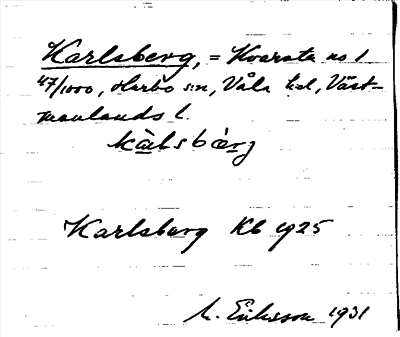 Karlsberg, = Kvarsta no 1
47/1000, Harbo s:n, Våla hd, Väst=
manlands l.
kàlsbärj
Karlsberg Kb 1925
M. Eriksson 1931